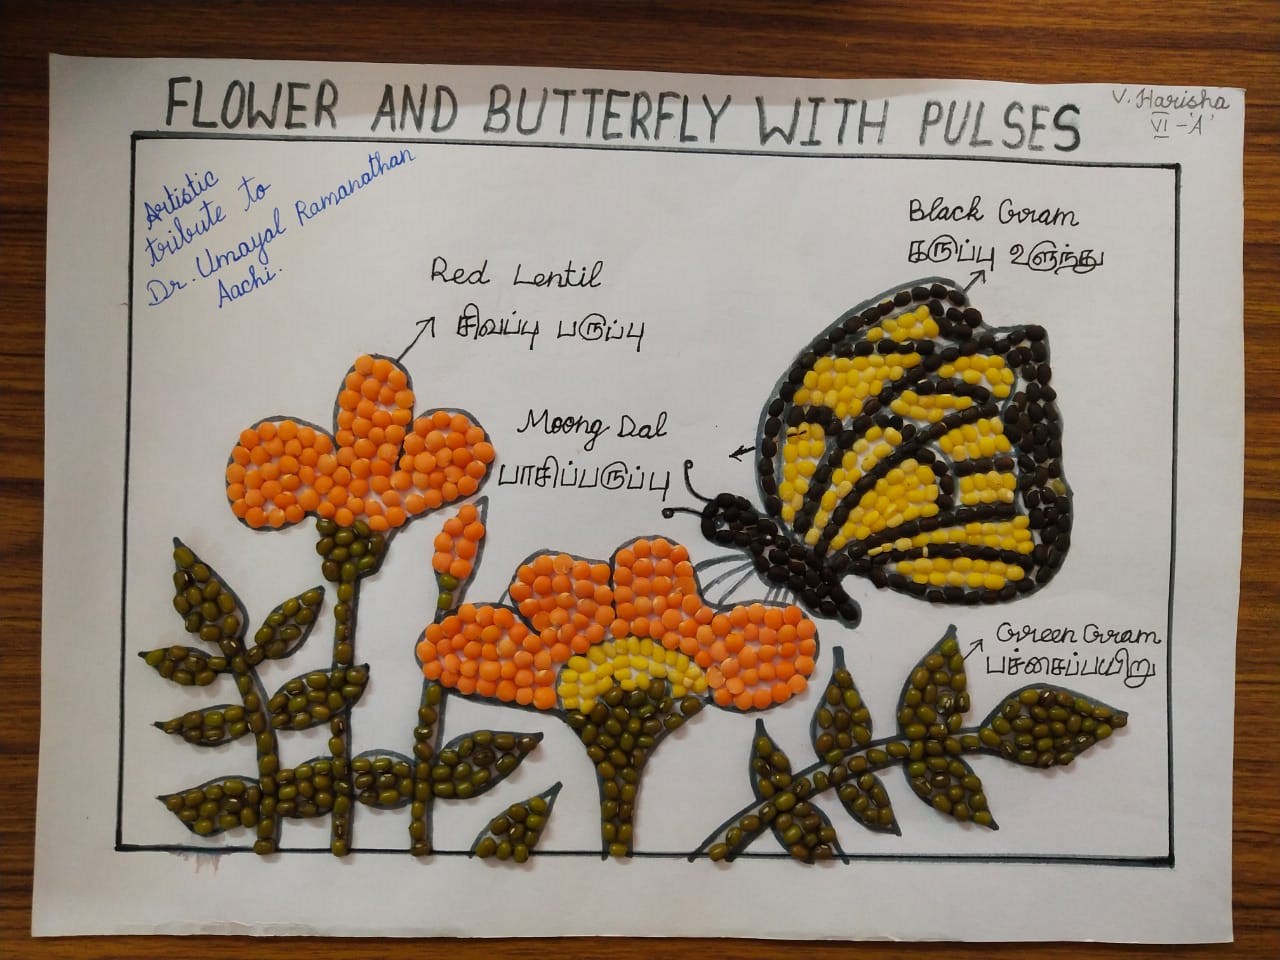 FLOWER AND BUTTERFLY WITH PULSES
V. Harisha
VI - 'A'
Artistic
tribute to
Dr. Umayal Ramanathan
Aachi.
Black Gram
கருப்பு உளுந்து
Red Lentil
சிவப்பு பருப்பு
Moong Dal
பாசிப்பருப்பு
Green Gram
பச்சைப்பயிறு